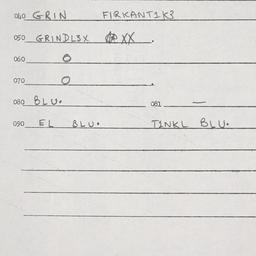 040 GRIN FIRKANT1K3
050 GRINDL3X XX.
060 O
070 O .
080 BLU. 081 —
090 EL BLU. TINKL BLU.